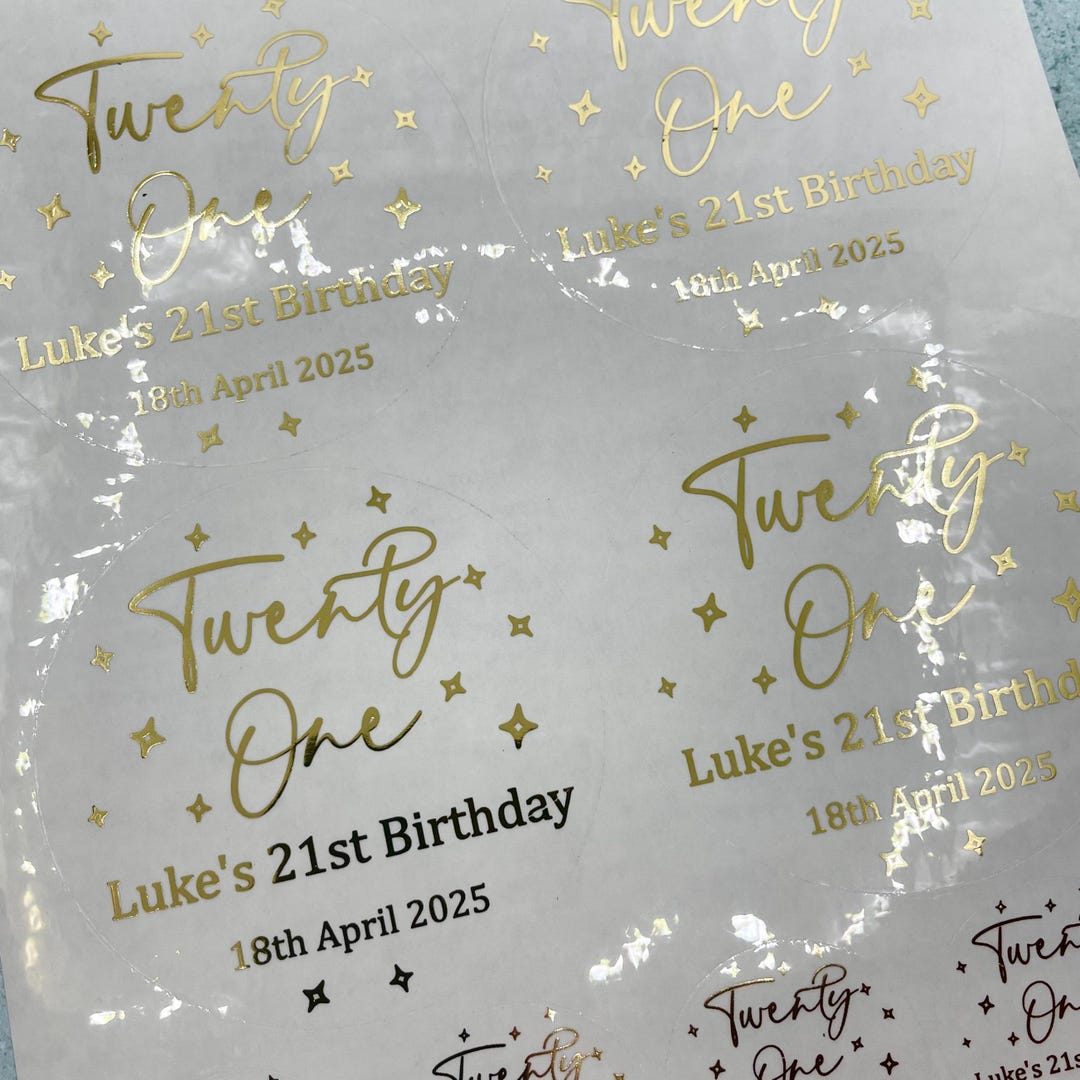 Twenty
One
Luke's 21st Birthday
18th April 2025
Twenty
One
Luke's 21st Birthday
18th April 2025
Twenty
One
Luke's 21st Birthday
18th April 2025
Twenty
One
Luke's 21st Birthd
18th April 2025
Twenty
Twenty
One
Twen
On
Luke's 21s